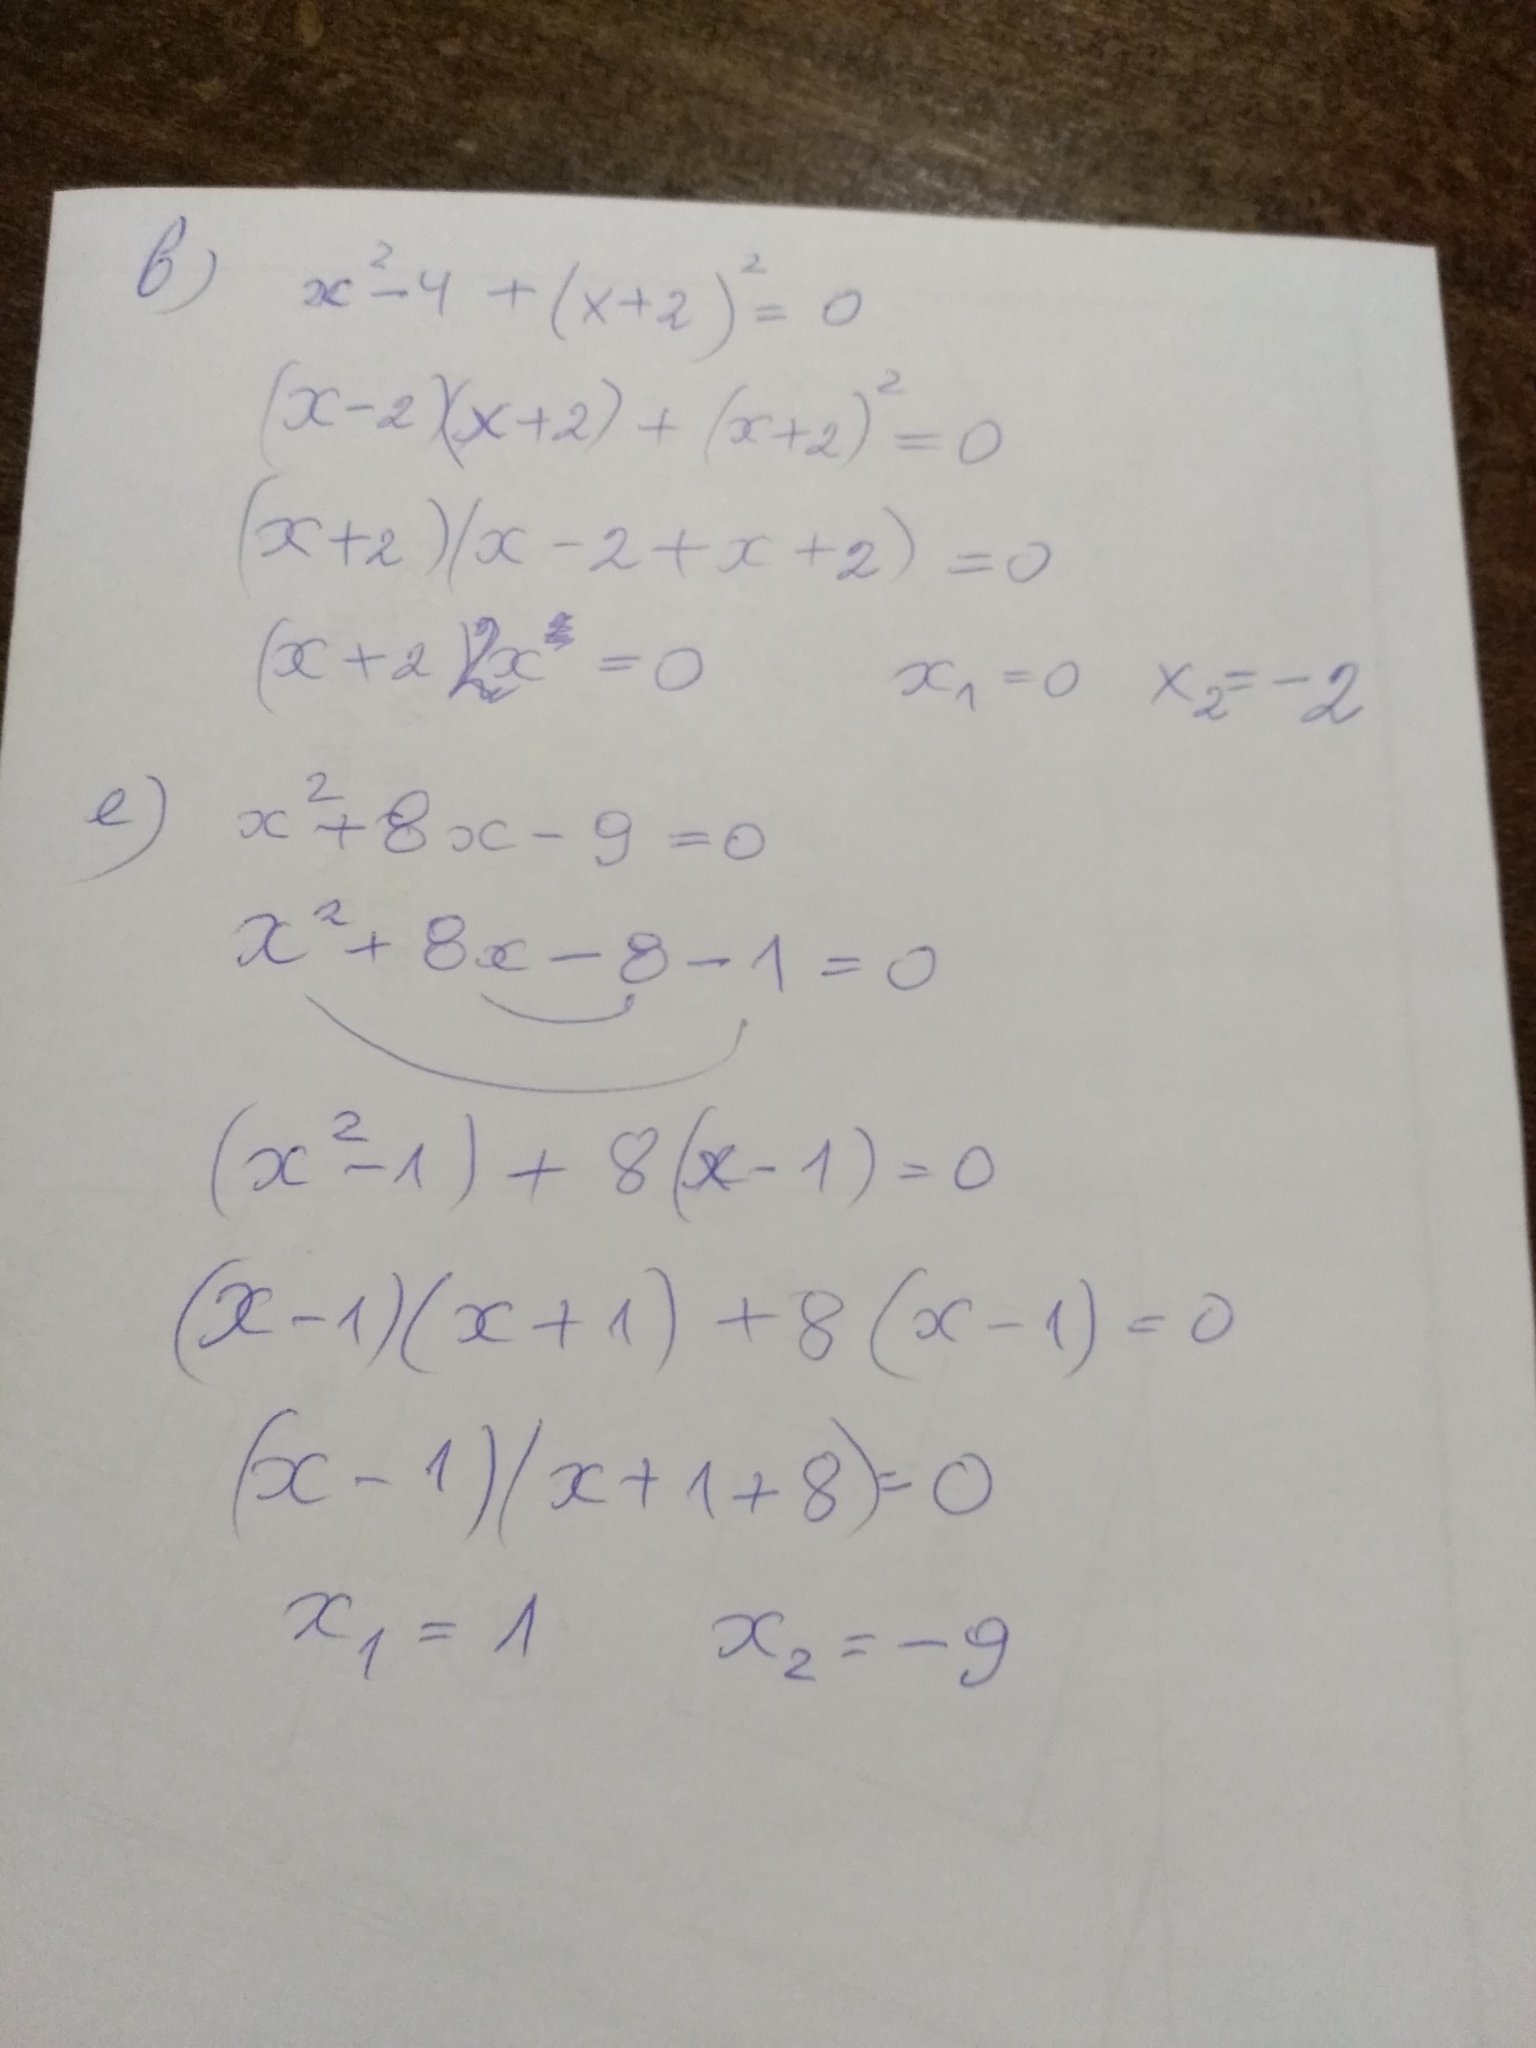 в) x²-4 + (x+2)² = 0
(x-2)(x+2) + (x+2)² = 0
(x+2)(x-2+x+2) = 0
(x+2)2x = 0 x₁ = 0 x₂ = -2
е) x²+8x-9=0
x²+8x-8-1=0
(x²-1) + 8(x-1)=0
(x-1)(x+1) +8(x-1)=0
(x-1)(x+1+8)=0
x₁ = 1 x₂ = -9